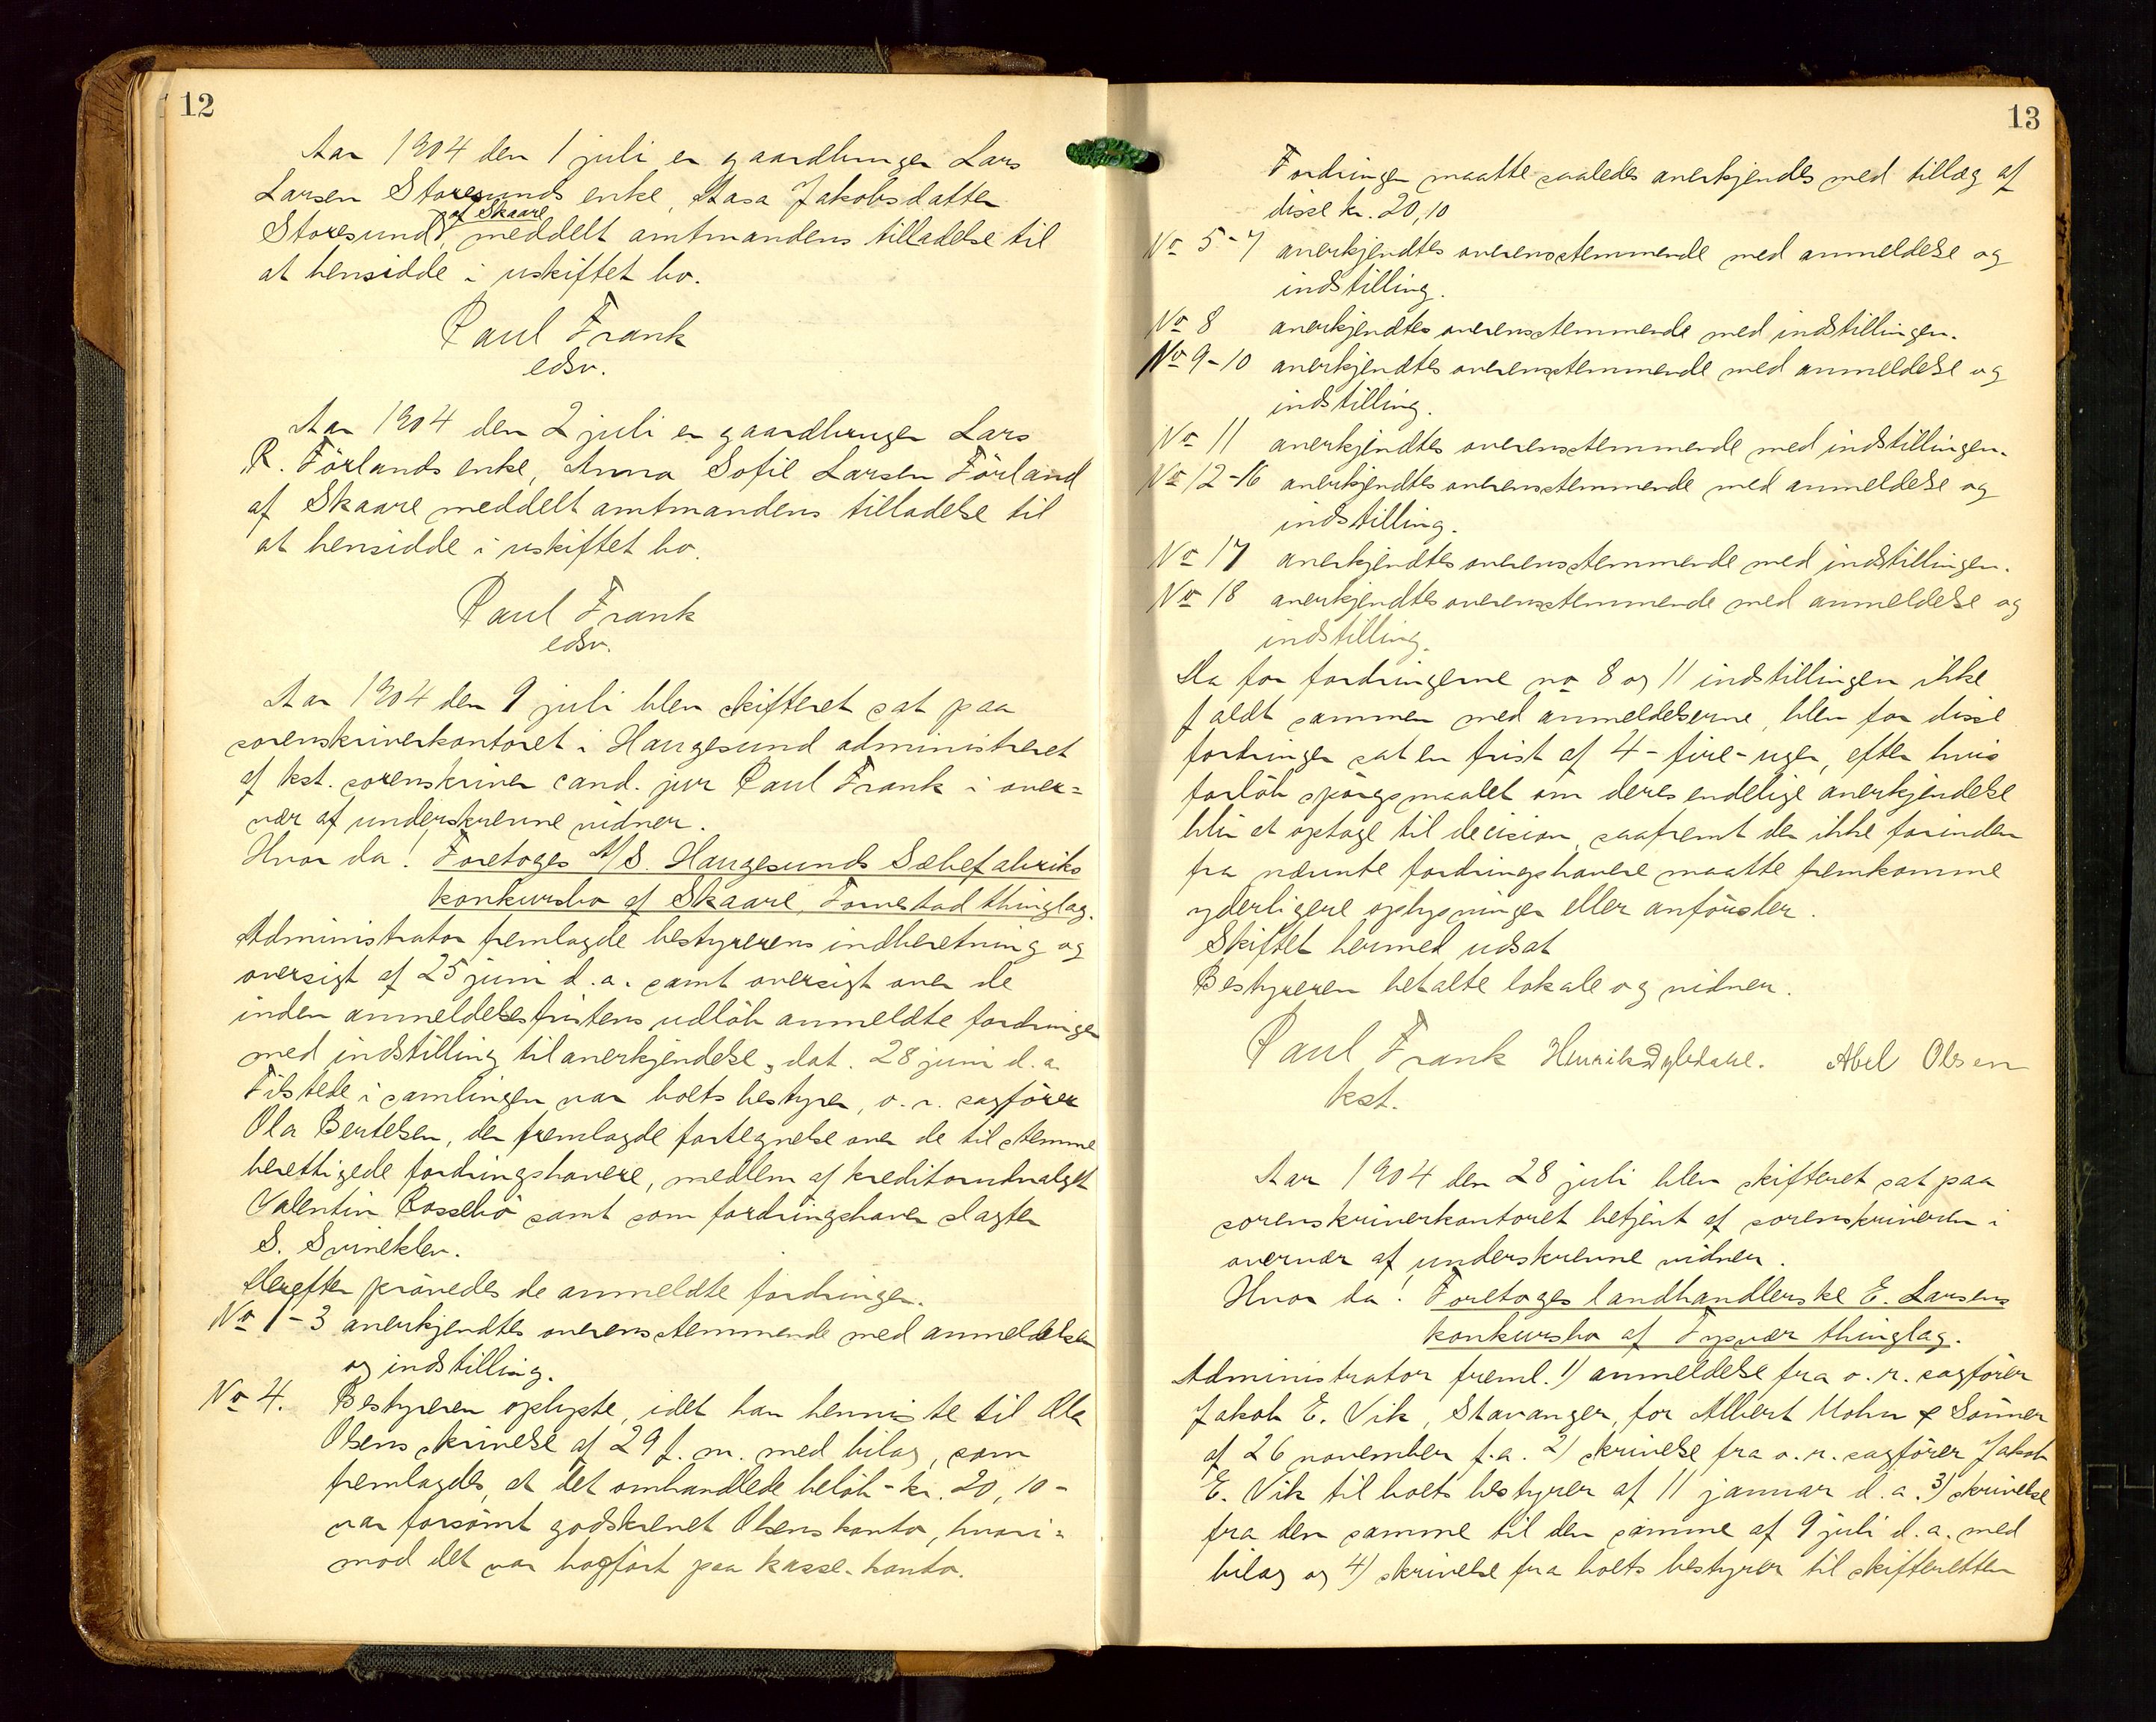 12
Aar 1904 den 1 juli er gaardbruger Lars
Larsen Storesunds enke, Aasa Jakobsdatter
af Skaare
Storesund, meddelt amtmandens tilladelse til
at hensidde i uskiftet bo.
Paul Frank
edsv.
Aar 1904 den 2 juli er gaardbruger Lars
R. Förlands enke, Anna Sofie Larsen Förland
af Skaare meddelt amtmandens tilladelse til
at hensidde i uskiftet bo.
Paul Frank
edsv.
Aar 1904 den 9 juli blev skifteret sat paa
sorenskriverkontoret i Haugesund administreret
af kst. sorenskriver cand. jur Paul Frank i over=
vær af underskrevne vidner.
Hvor da! Foretoges A/S. Haugesunds Sæbefabriks
konkursbo af Skaare, Torvestad thinglag.
Administrator fremlagde bestyrerens indberetning og
oversigt af 25 juni d. a. samt oversigt over de
inden anmeldelsesfristens udløb anmeldte fordringer
med indstilling til anerkjendelse, dat. 28 juni d. a.
Tilstede i samlingen var boets bestyrer, o. r. sagfører
Ola Bertelsen, der fremlagde fortegnelse over de til stemme
berettigede fordringshavere, medlem af kreditorudvalget
Valentin Rossebö samt som fordringshaver slagter
S. Svineklev.
Derefter prövedes de anmeldte fordringer.
No 1-3 anerkjendtes overensstemmende med anmeldelsen
og indstilling.
No 4. Bestyreren oplyste, idet han henviste til Ola
Olsens skrivelse af 29 f. m. med bilag, som
fremlagdes, at det omhandlede beløb - kr. 20,10 -
var forsömt godskrevet Olsens konto, hvori=
mod det var bogfört paa kasse-konto.
13
Fordringen maatte saaledes anerkjendes med tillæg af
disse kr. 20,10
No 5-7 anerkjendtes overensstemmende med anmeldelse og
indstilling.
No 8 anerkjendtes overensstemmende med indstillingen.
No 9-10 anerkjendtes overensstemmende med anmeldelse og
indstilling.
No 11 anerkjendtes overensstemmende med indstillingen.
No 12-16 anerkjendtes overensstemmende med anmeldelse og
indstilling.
No 17 anerkjendtes overensstemmende med indstillingen.
No 18 anerkjendtes overensstemmende med anmeldelse og
indstilling.
Da for fordringerne no 8 og 11 indstillingen ikke
faldt sammen med anmeldelserne, blev for disse
fordringer sat en frist af 4 - fire - uger, efter hvis
forløb spörgsmaalet om deres endelige anerkjendelse
blir at optage til decision, saafremt der ikke forinden
fra nævnte fordringshavere maatte fremkomme
yderligere oplysninger eller anförsler.
Skiftet hermed udsat
Bestyreren betalte lokale og vidner.
Paul Frank Henrik Abel Olsen
kst.
Aar 1904 den 28 juli blev skifteret sat paa
sorenskriverkontoret betjent af sorenskriveren i
overvær af underskrevne vidner.
Hvor da! Foretoges landhandlerske E. Larsens
konkursbo af Tysvær thinglag.
Administrator freml. 1) anmeldelse fra o. r. sagfører
Jakob E. Vik, Stavanger, for Albert Mohn & Sönner
af 26 november f. a. 2) skrivelse fra o. r. sagförer Jakob
E. Vik til boets bestyrer af 11 januar d. a. 3) skrivelse
fra den samme til den samme af 9 juli d. a. med
bilag og 4) skrivelse fra boets bestyrer til skifteretten